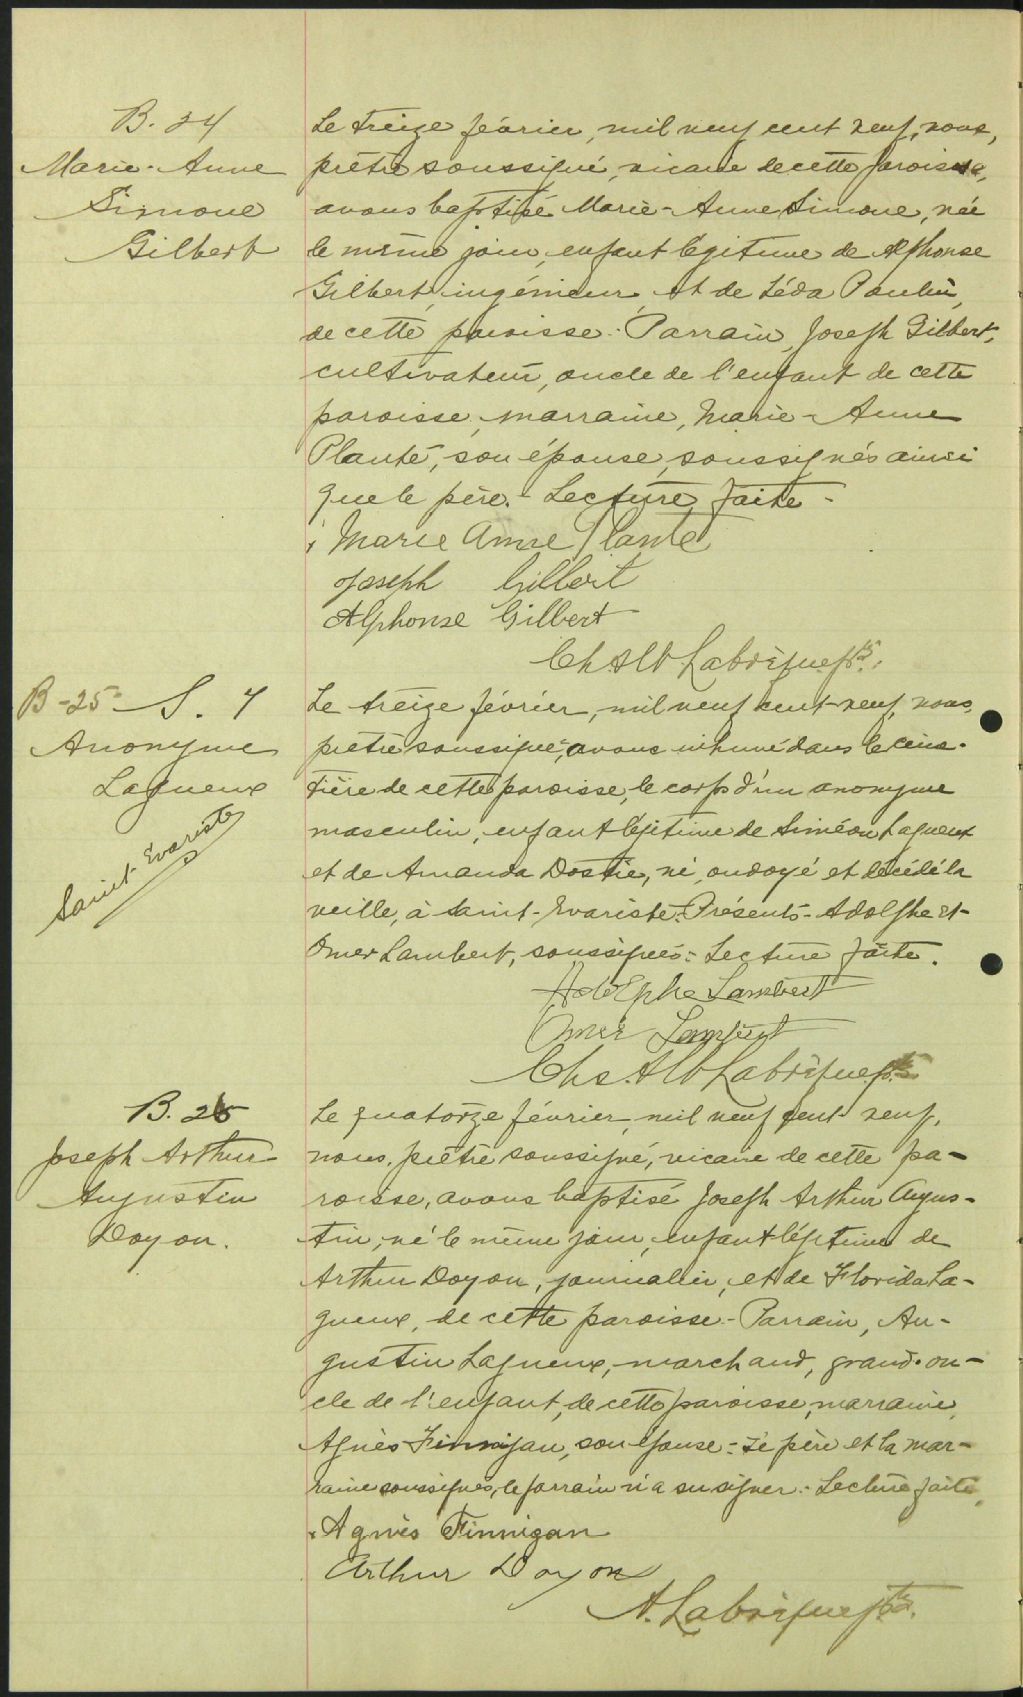 B. 24
Marie-Anne
Simone
Gilbert
Le treize février, mil neuf cent neuf, nous,
prêtre soussigné, vicaire de cette paroisse,
avons baptisé Marie-Anne Simone, née
le même jour, enfant légitime de Alphonse
Gilbert, ingénieur, et de Léda Poulin,
de cette paroisse. Parrain, Joseph Gilbert,
cultivateur, oncle de l'enfant de cette
paroisse, marraine, Marie-Anne
Plante, son épouse, soussignés ainsi
que le père. - Lecture faite -
Marie Anne Plante
Joseph Gilbert
Alphonse Gilbert
Ch Alb Labrèque ptre.
B-25- S. 7
Anonyme
Lagueux
Saint-Evariste
Le treize février, mil neuf cent-neuf, nous,
prêtre soussigné, avons inhumé dans le cime-
tière de cette paroisse, le corps d'un anonyme
masculin, enfant légitime de Siméon Lagueux
et de Amanda Dostie, né, ondoyé et décédé la
veille, à Saint-Evariste. Présents - Adolphe et
Omer Lambert, soussignés. Lecture faite.
Adolphe Lambert
Omer Lambert
Chs. Alb Labrèque ptre
B. 25
Joseph Arthur
Augustin
Doyon.
Le quatorze février, mil neuf cent neuf,
nous, prêtre soussigné, vicaire de cette pa-
roisse, avons baptisé Joseph Arthur Augus-
tin, né le même jour, enfant légitime de
Arthur Doyon, journalier, et de Florida La-
gueux, de cette paroisse. - Parrain, Au-
gustin Lagueux, marchand, grand-on-
cle de l'enfant, de cette paroisse, marraine,
Agnès Finnigan, son épouse. - Le père et la mar-
raine soussignés, le parrain n'a su signer. - Lecture faite,
Agnès Finnigan
Arthur Doyon
A. Labrèque ptre.